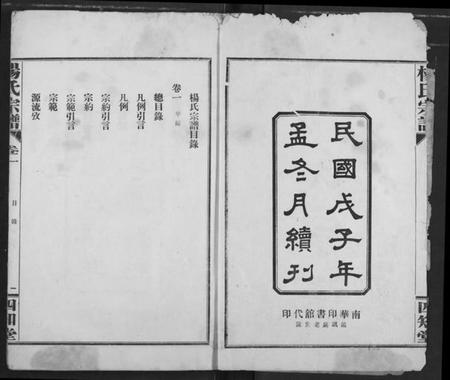 楊氏宗譜
民國戊子年
孟冬月續刊
南華印書舘代印
四知堂
楊氏宗譜目錄
卷一
總目錄
凡例引言
凡例
宗約引言
宗約
宗範引言
宗範
源流攷
楊氏宗譜
卷一
目錄
二
四知堂